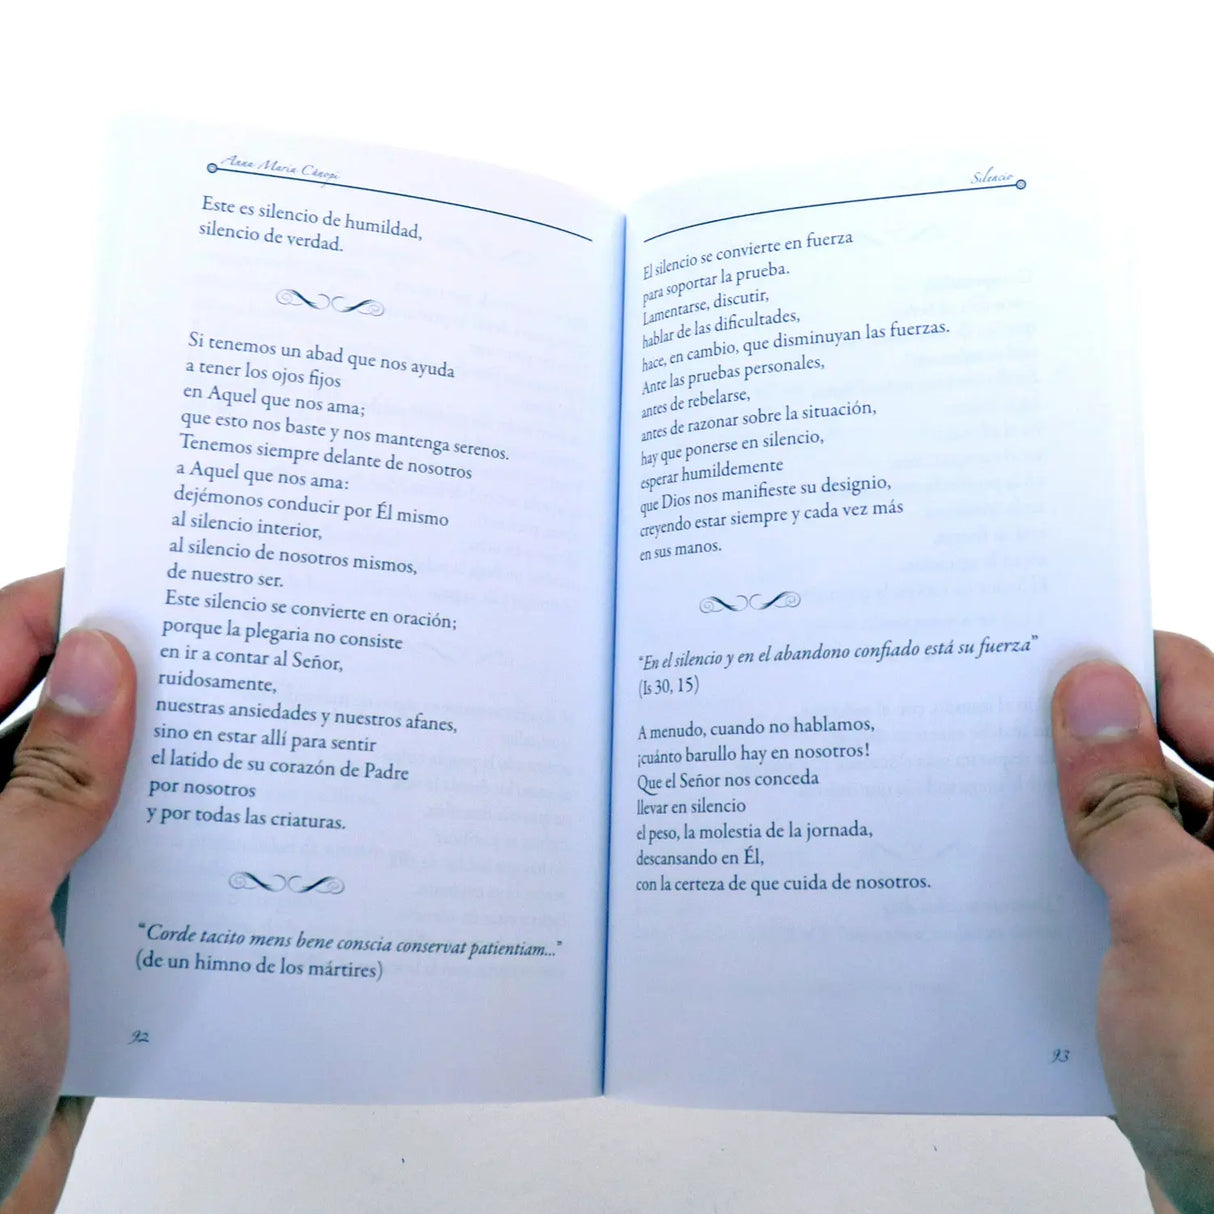 Anna Maria Cànopi
Este es silencio de humildad,
silencio de verdad.
Si tenemos un abad que nos ayuda
a tener los ojos fijos
en Aquel que nos ama;
que esto nos baste y nos mantenga serenos.
Tenemos siempre delante de nosotros
a Aquel que nos ama:
dejémonos conducir por Él mismo
al silencio interior,
al silencio de nosotros mismos,
de nuestro ser.
Este silencio se convierte en oración;
porque la plegaria no consiste
en ir a contar al Señor,
ruidosamente,
nuestras ansiedades y nuestros afanes,
sino en estar allí para sentir
el latido de su corazón de Padre
por nosotros
y por todas las criaturas.
“Corde tacito mens bene conscia conservat patientiam...”
(de un himno de los mártires)
92
Silencio
El silencio se convierte en fuerza
para soportar la prueba.
Lamentarse, discutir,
hablar de las dificultades,
hace, en cambio, que disminuyan las fuerzas.
Ante las pruebas personales,
antes de rebelarse,
antes de razonar sobre la situación,
hay que ponerse en silencio,
esperar humildemente
que Dios nos manifieste su designio,
creyendo estar siempre y cada vez más
en sus manos.
“En el silencio y en el abandono confiado está su fuerza”
(Is 30, 15)
A menudo, cuando no hablamos,
¡cuánto barullo hay en nosotros!
Que el Señor nos conceda
llevar en silencio
el peso, la molestia de la jornada,
descansando en Él,
con la certeza de que cuida de nosotros.
93